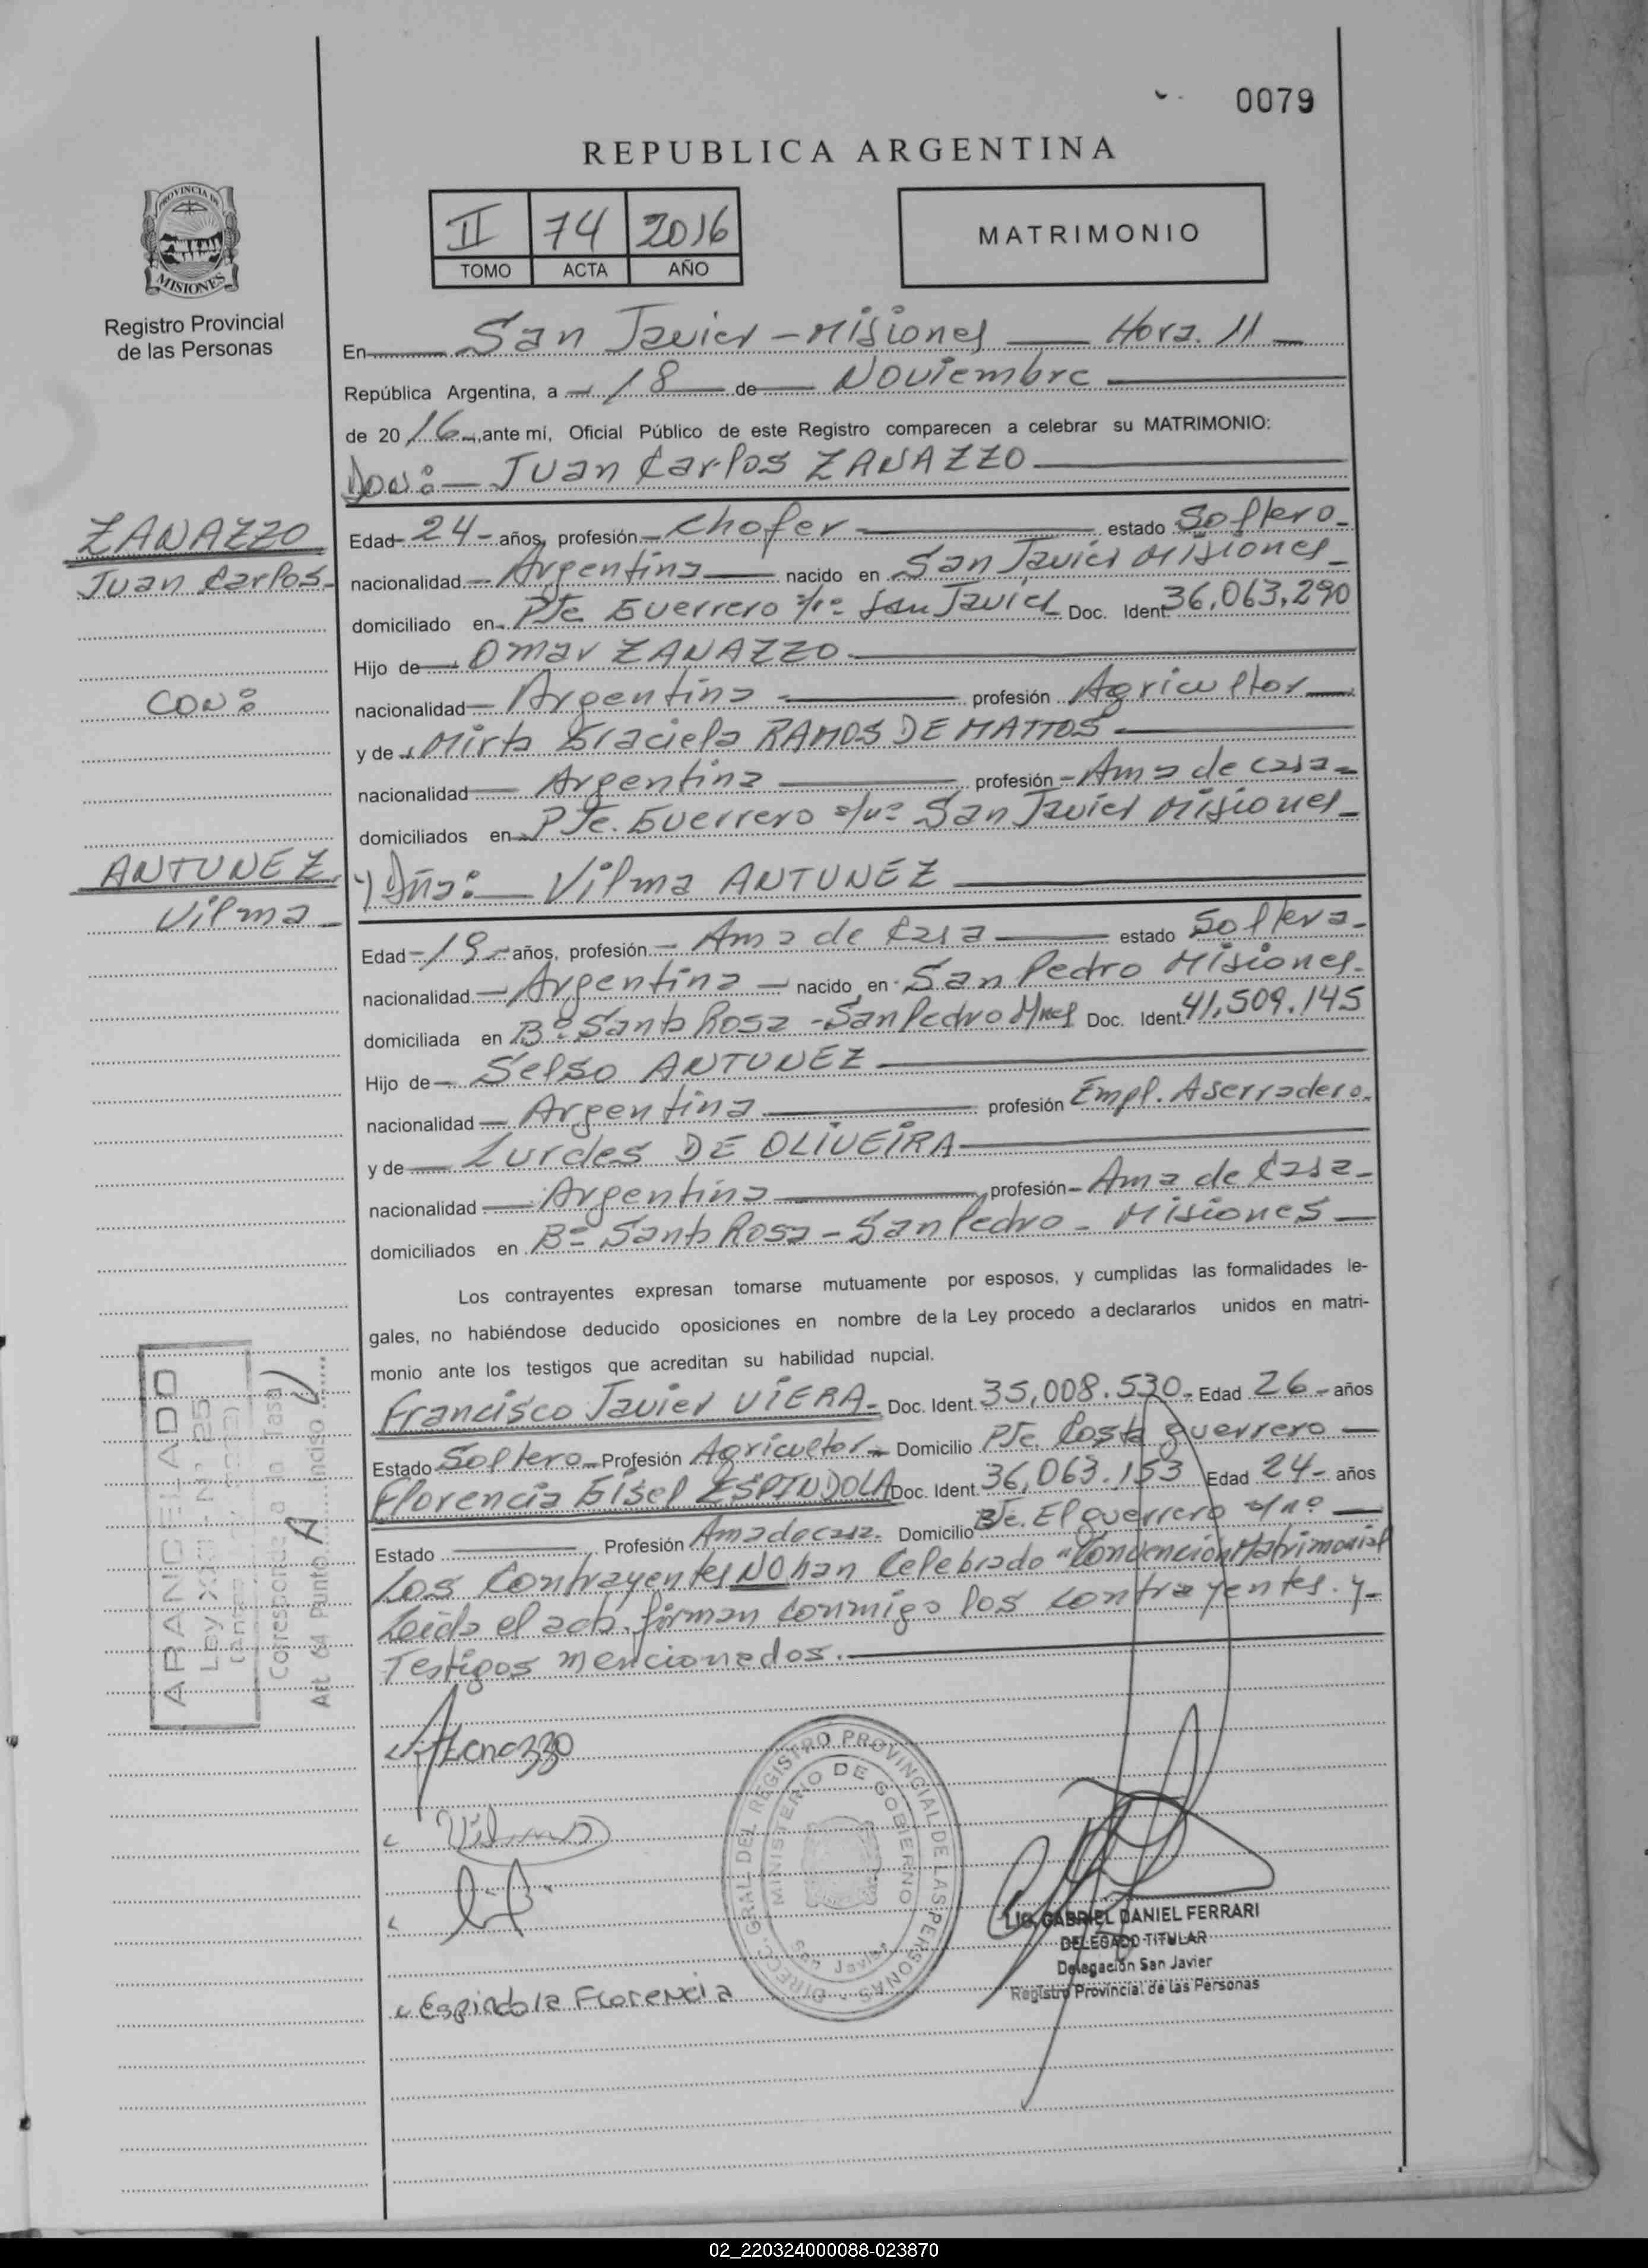 0079
REPUBLICA ARGENTINA
PROVINCIA DE
MISIONES
Registro Provincial
de las Personas
II 74 2016
TOMO ACTA AÑO
MATRIMONIO
En San Javier - Misiones Hora. 11
República Argentina, a 18 de Noviembre
de 2016, ante mí, Oficial Público de este Registro comparecen a celebrar su MATRIMONIO:
Don: Juan Carlos ZANAZZO
ZANAZZO
Juan Carlos
CON:
ANTUNEZ
Vilma
Edad 24 años, profesión Chofer estado Soltero
nacionalidad Argentina nacido en San Javier Misiones
domiciliado en Pje Guerrero s/nº San Javier Doc. Ident. 36,063,290
Hijo de Omar ZANAZZO
nacionalidad Argentina profesión Agricultor
y de Mirta Graciela RAMOS DE MATTOS
nacionalidad Argentina profesión Ama de casa
domiciliados en Pje. Guerrero s/nº San Javier Misiones
y Dña: Vilma ANTUNEZ
Edad 19 años, profesión Ama de Casa estado Soltera
nacionalidad Argentina nacido en San Pedro Misiones
domiciliada en Bº Santa Rosa - San Pedro Mnes Doc. Ident. 41,509.145
Hijo de Selso ANTUNEZ
nacionalidad Argentina profesión Empl. Aserradero
y de Lurdes DE OLIVEIRA
nacionalidad Argentina profesión Ama de Casa
domiciliados en Bº Santa Rosa - San Pedro - Misiones
Los contrayentes expresan tomarse mutuamente por esposos, y cumplidas las formalidades le-
gales, no habiéndose deducido oposiciones en nombre de la Ley procedo a declararlos unidos en matri-
monio ante los testigos que acreditan su habilidad nupcial.
Francisco Javier VIERA Doc. Ident. 35,008.530 Edad 26 años
Estado Soltero Profesión Agricultor Domicilio Pje. Costa guerrero
Florencia Gisel ESPINDOLA Doc. Ident. 36,063.153 Edad 24 años
Estado Profesión Ama de casa. Domicilio Pje. El guerrero s/nº
Los Contrayentes NO han Celebrado "Convención Matrimonial
Leida el acta. firman conmigo los contrayentes. y
Testigos mencionados.
ARANCELADO
Corresponde a la Tasa
Art. 64 Punto A Inciso
Zanazzo
Vilma
Espindola Florencia
DIREC. GRAL. DEL REGISTRO PROVINCIAL DE LAS PERSONAS
MINISTERIO DE GOBIERNO
San Javier
LIC. GABRIEL DANIEL FERRARI
DELEGADO TITULAR
Delegación San Javier
Registro Provincial de las Personas
02_220324000088-023870